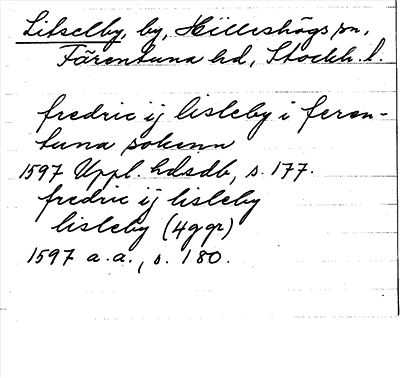 Litselby, by, Hilleshögs sn,
Färentuna hd, Stockh. l.
fredric ij lisleby i feren-
tuna sokenn
1597 Uppl. hdsdb, s. 177.
fredric ij lisleby
lisleby (4 ggr)
1597 a.a., s. 180.